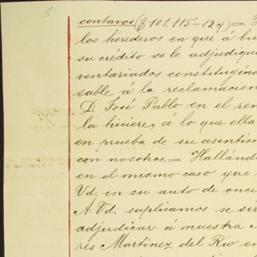 5
centavos ($ 101.115-12 c) =
los herederos en que á bu
su crédito se le adjudique
ventariados constituyéno
sable á la reclamacion
D. José Pablo en el ren
la hiciere, á lo que ella
en prueba de su asentim
con nosotros. — Hallánd
en el mismo caso que
Vd. en su auto de once
A Vd. suplicamos se sir
adjudicar á nuestra
res Martinez del Rio en